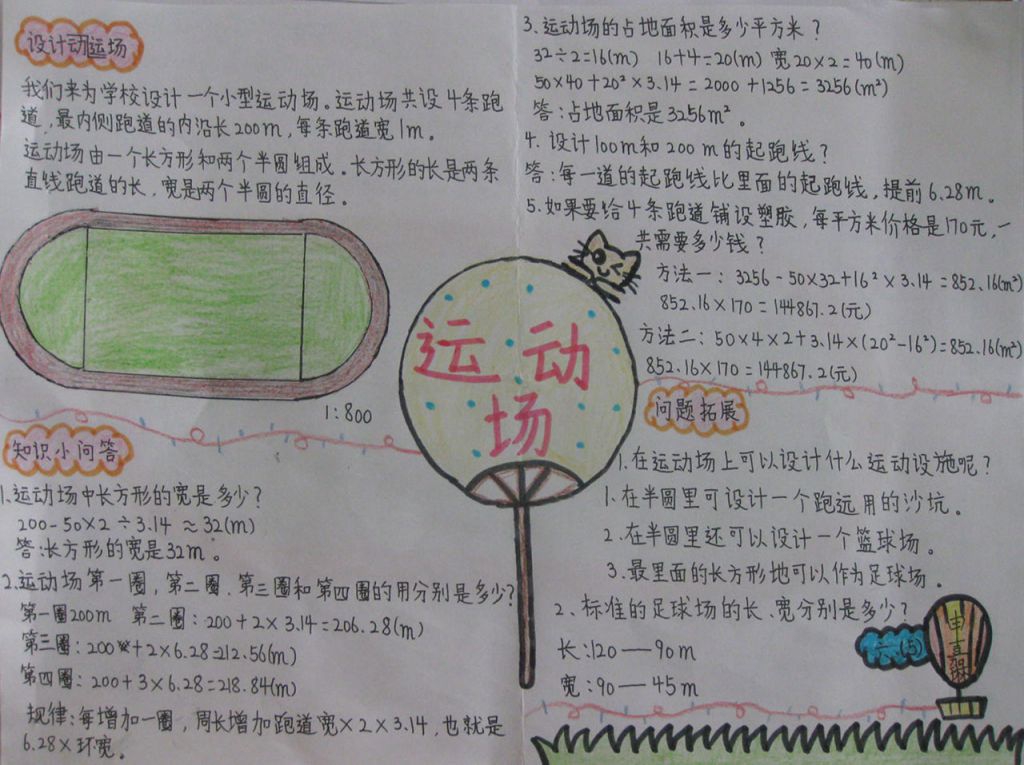 设计动运场
我们来为学校设计一个小型运动场。运动场共设4条跑
道,最内侧跑道的内沿长200m,每条跑道宽1m。
运动场由一个长方形和两个半圆组成。长方形的长是两条
直线跑道的长,宽是两个半圆的直径。
1:800
知识小问答
1.运动场中长方形的宽是多少?
200-50×2÷3.14≈32(m)
答:长方形的宽是32m。
2.运动场第一圈,第二圈.第三圈和第四圈的用分别是多少?
第一圈200m 第二圈:200+2×3.14=206.28(m)
第三圈:200+2×6.28=212.56(m)
第四圈:200+3×6.28=218.84(m)
规律:每增加一圈,周长增加跑道宽×2×3.14,也就是
6.28×环宽。
运动
场
3.运动场的占地面积是多少平方米?
32÷2=16(m) 16+4=20(m) 宽20×2=40(m)
50×40+20²×3.14=2000+1256=3256(m²)
答:占地面积是3256m²。
4.设计100m和200m的起跑线?
答:每一道的起跑线比里面的起跑线,提前6.28m。
5.如果要给4条跑道铺设塑胶,每平方米价格是170元,一
共需要多少钱?
方法一:3256-50×32+16²×3.14=852.16(m²)
852.16×170=144867.2(元)
方法二:50×4×2+3.14×(20²-16²)=852.16(m²)
852.16×170=144867.2(元)
问题拓展
1.在运动场上可以设计什么运动设施呢?
1.在半圆里可设计一个跑远用的沙坑。
2.在半圆里还可以设计一个篮球场。
3.最里面的长方形地可以作为足球场。
2.标准的足球场的长、宽分别是多少?
长:120—90m
宽:90—45m
六.(5)